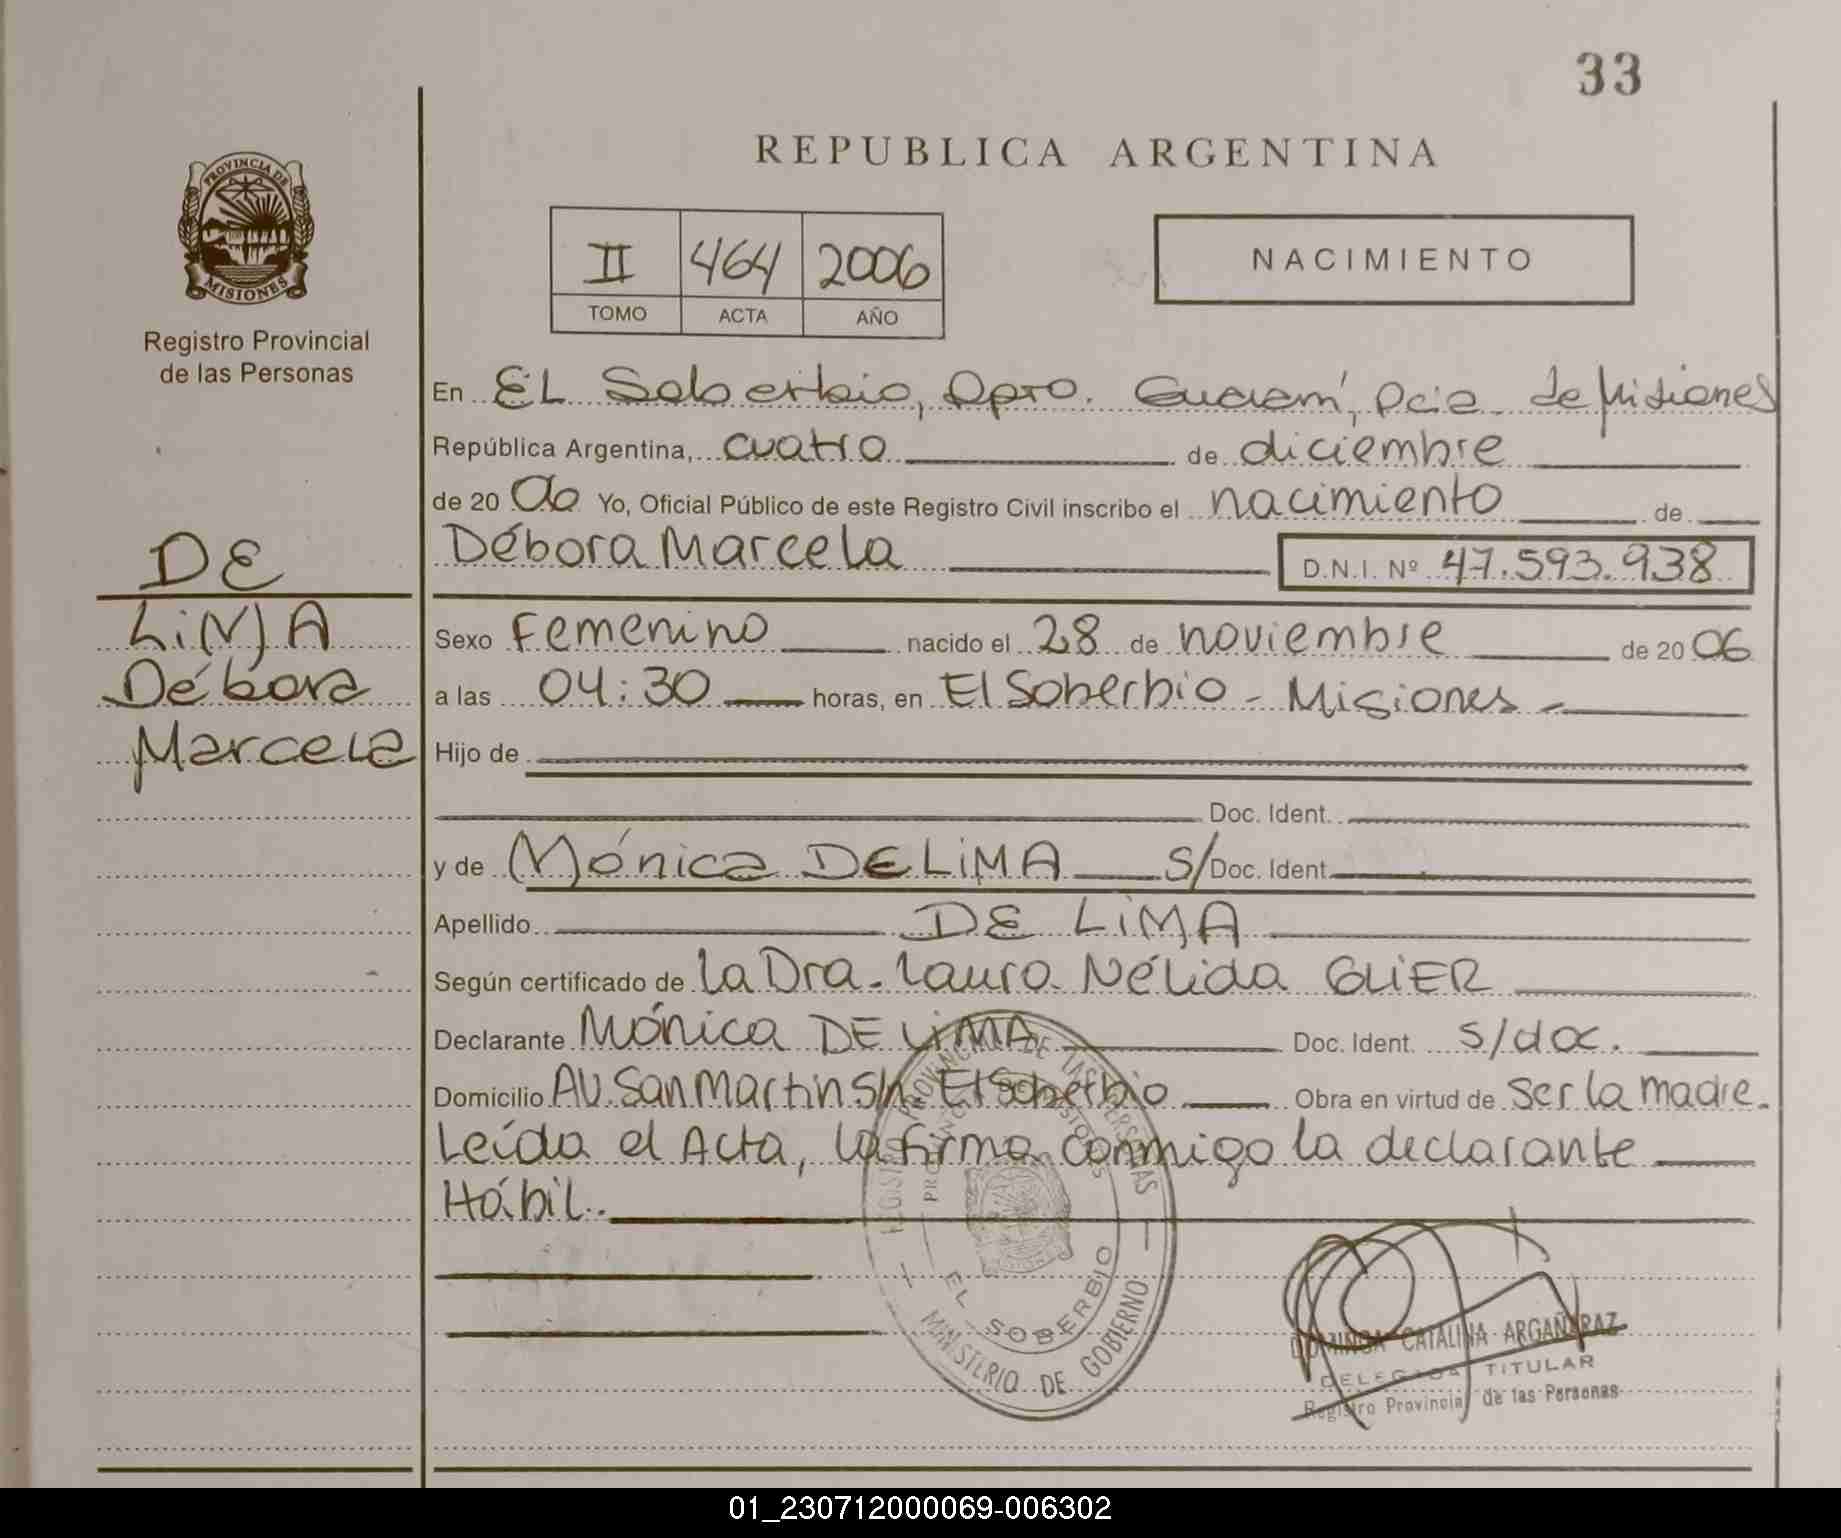 33
REPUBLICA ARGENTINA
PROVINCIA DE
MISIONES
Registro Provincial
de las Personas
II 464 2006
TOMO ACTA AÑO
NACIMIENTO
En EL Soberbio, Dpto. Guaraní, Pcia. de Misiones
República Argentina, cuatro de diciembre
de 20 06 Yo, Oficial Público de este Registro Civil inscribo el nacimiento de
Débora Marcela D.N.I. Nº 47.593.938
DE
LiMA
Débora
Marcela
Sexo Femenino nacido el 28 de noviembre de 20 06
a las 04:30 horas, en El Soberbio - Misiones -
Hijo de
Doc. Ident.
y de Mónica DE LiMA S/Doc. Ident.
Apellido DE LiMA
Según certificado de la Dra. Laura Nélida GLiER
Declarante Mónica DE LiMA Doc. Ident. S/doc.
Domicilio AV. San Martin S/n. El Soberbio Obra en virtud de ser la madre.
Leída el Acta, la firma conmigo la declarante
Hábil.
REGISTRO PROVINCIAL DE LAS PERSONAS
PROVINCIA DE MISIONES
EL SOBERBIO
MINISTERIO DE GOBIERNO
DOMINGA CATALINA ARGAÑARAZ
DELEGADA TITULAR
Registro Provincial de las Personas
01_230712000069-006302